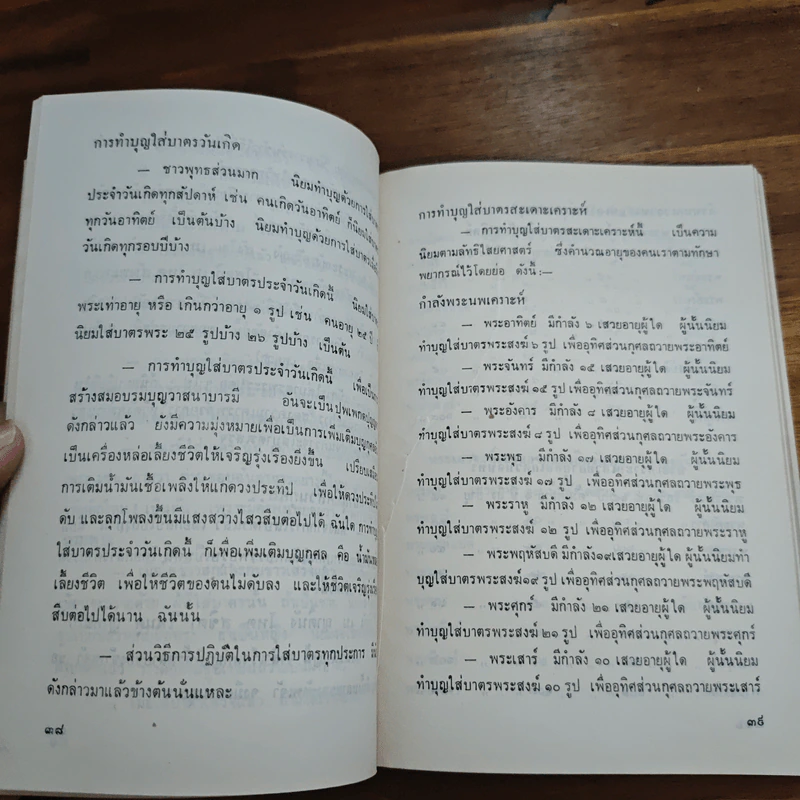 การทำบุญใส่บาตรวันเกิด
— ชาวพุทธส่วนมาก นิยมทำบุญด้วยการใส่
ประจำวันเกิดทุกสัปดาห์ เช่น คนเกิดวันอาทิตย์ ก็นิยมใส่
ทุกวันอาทิตย์ เป็นต้นบ้าง นิยมทำบุญด้วยการใส่บาตร
วันเกิดทุกรอบปีบ้าง
— การทำบุญใส่บาตรประจำวันเกิดนี้ นิยม
พระเท่าอายุ หรือ เกินกว่าอายุ ๑ รูป เช่น คนอายุ ๒๕ ปี
นิยมใส่บาตรพระ ๒๕ รูปบ้าง ๒๖ รูปบ้าง เป็นต้น
— การทำบุญใส่บาตรประจำวันเกิดนี้ เพื่อเป็น
สร้างสมอบรมบุญวาสนาบารมี อันจะเป็น
ดังกล่าวแล้ว ยังมีความมุ่งหมายเพื่อเป็นการเพิ่มเติมบุญกุศล
เป็นเครื่องหล่อเลี้ยงชีวิตให้เจริญรุ่งเรืองยิ่งขึ้น
การเติมน้ำมันเชื้อเพลิงให้แก่ดวงประทีป เพื่อให้ดวงประทีป
ดับ และลุกโพลงขึ้นมีแสงสว่างไสวสืบต่อไปได้ ฉันใด การทำ
ใส่บาตรประจำวันเกิดนี้ ก็เพื่อเพิ่มเติมบุญกุศล คือ น้ำมัน
เลี้ยงชีวิต เพื่อให้ชีวิตของตนไม่ดับลง และให้ชีวิตเจริญ
สืบต่อไปได้นาน ฉันนั้น
— ส่วนวิธีการปฏิบัติในการใส่บาตรทุกประการ
ดังกล่าวมาแล้วข้างต้นนั่นแหละ
๓๘
การทำบุญใส่บาตรสะเดาะเคราะห์
— การทำบุญใส่บาตรสะเดาะเคราะห์นี้ เป็นความ
นิยมตามลัทธิไสยศาสตร์ ซึ่งคำนวณอายุของคนเราตามทักษา
พยากรณ์ไว้โดยย่อ ดังนี้:—
กำลังพระนพเคราะห์
— พระอาทิตย์ มีกำลัง ๖ เสวยอายุผู้ใด ผู้นั้นนิยม
ทำบุญใส่บาตรพระสงฆ์ ๖ รูป เพื่ออุทิศส่วนกุศลถวายพระอาทิตย์
— พระจันทร์ มีกำลัง ๑๕ เสวยอายุผู้ใด ผู้นั้นนิยม
ทำบุญใส่บาตรพระสงฆ์ ๑๕ รูป เพื่ออุทิศส่วนกุศลถวายพระจันทร์
— พระอังคาร มีกำลัง ๘ เสวยอายุผู้ใด ผู้นั้นนิยม
ทำบุญใส่บาตรพระสงฆ์ ๘ รูป เพื่ออุทิศส่วนกุศลถวายพระอังคาร
— พระพุธ มีกำลัง ๑๗ เสวยอายุผู้ใด ผู้นั้นนิยม
ทำบุญใส่บาตรพระสงฆ์ ๑๗ รูป เพื่ออุทิศส่วนกุศลถวายพระพุธ
— พระราหู มีกำลัง ๑๒ เสวยอายุผู้ใด ผู้นั้นนิยม
ทำบุญใส่บาตรพระสงฆ์ ๑๒ รูป เพื่ออุทิศส่วนกุศลถวายพระราหู
— พระพฤหัสบดี มีกำลัง๑๙เสวยอายุผู้ใด ผู้นั้นนิยมทำ
บุญใส่บาตรพระสงฆ์๑๙ รูป เพื่ออุทิศส่วนกุศลถวายพระพฤหัสบดี
— พระศุกร์ มีกำลัง ๒๑ เสวยอายุผู้ใด ผู้นั้นนิยม
ทำบุญใส่บาตรพระสงฆ์ ๒๑ รูป เพื่ออุทิศส่วนกุศลถวายพระศุกร์
— พระเสาร์ มีกำลัง ๑๐ เสวยอายุผู้ใด ผู้นั้นนิยม
ทำบุญใส่บาตรพระสงฆ์ ๑๐ รูป เพื่ออุทิศส่วนกุศลถวายพระเสาร์
๓๙